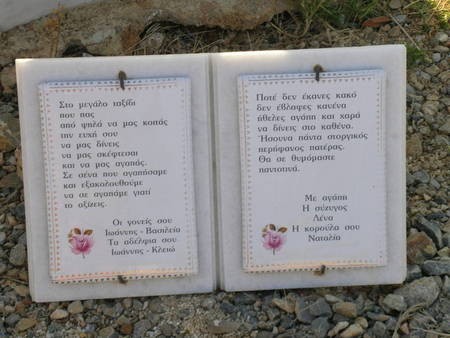 Στο μεγάλο ταξίδι
που πας
από ψηλά να μας κοιτάς
την ευχή σου
να μας δίνεις
να μας σκέφτεσαι
και να μας αγαπάς.
Σε σένα που αγαπήσαμε
και εξακολουθούμε
να σε αγαπάμε γιατί
το αξίζεις.
Οι γονείς σου
Ιωάννης - Βασιλεία
Τα αδέλφια σου
Ιωάννης - Κλειώ
Ποτέ δεν έκανες κακό
δεν έβλαψες κανένα
ήθελες αγάπη και χαρά
να δίνεις στο καθένα.
Ήσουνα πάντα στοργικός
περήφανος πατέρας.
Θα σε θυμόμαστε
παντοτινά.
Με αγάπη
Η σύζυγος
Λένα
Η κορούλα σου
Ναταλία